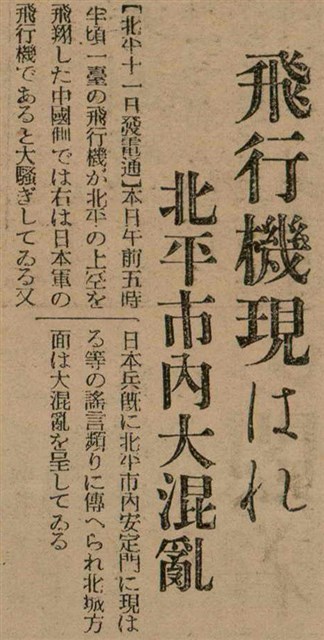 飛行機現はれ
北平市內大混亂
【北平十一日發電通】本日午前五時
半頃一臺の飛行機が北平の上空を
飛翔した中國側では右は日本軍の
飛行機であると大騷ぎしてゐる又
日本兵旣に北平市內安定門に現は
る等の謠言頻りに傳へられ北城方
面は大混亂を呈してゐる